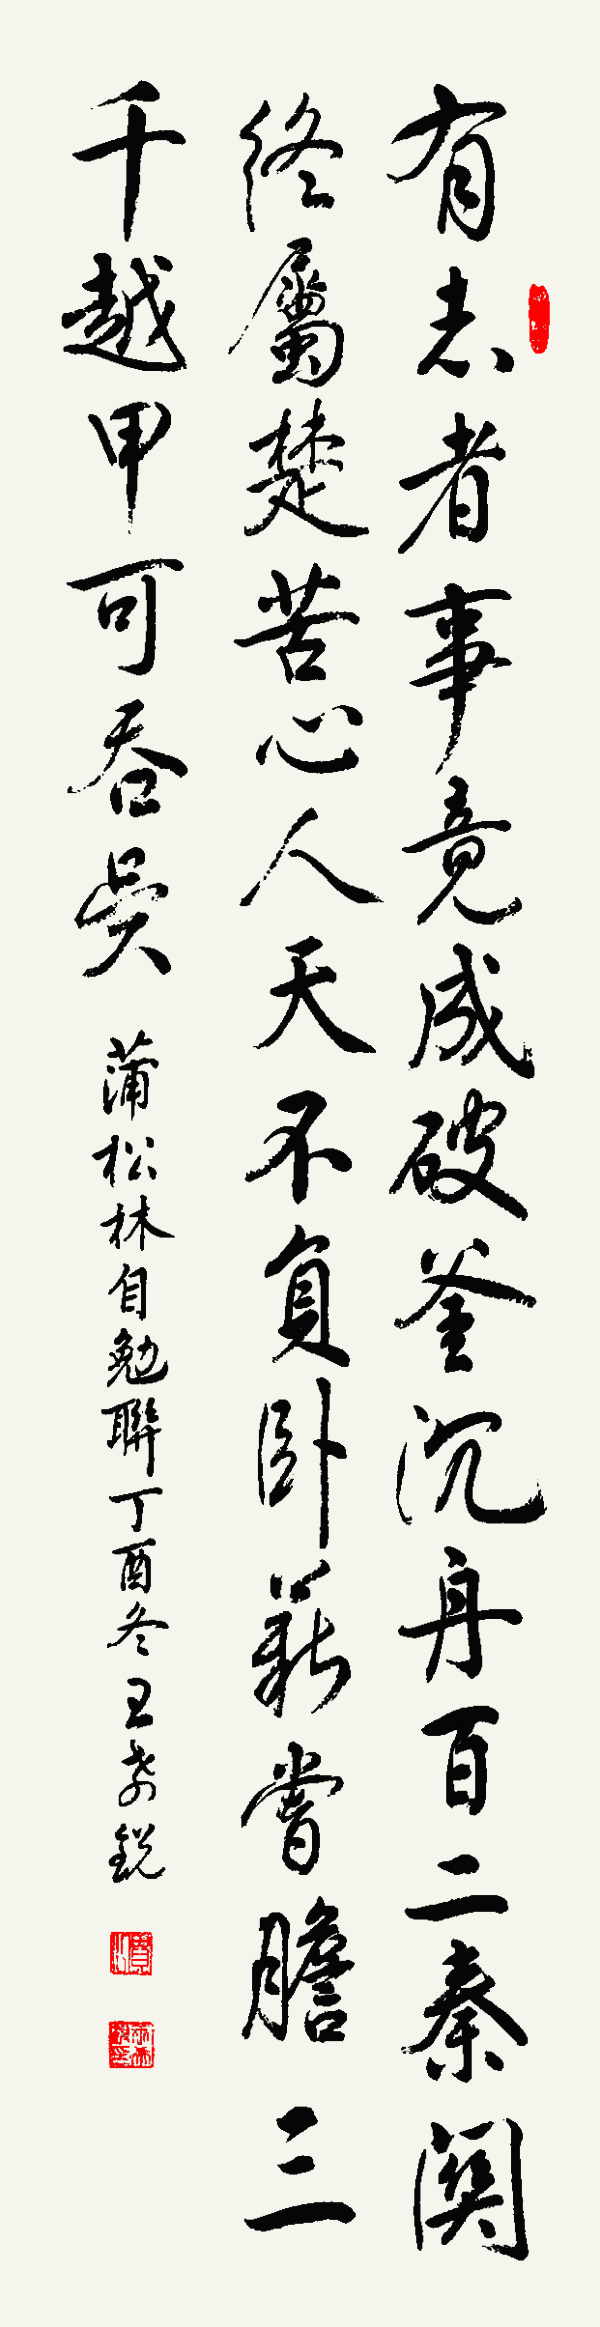 有志者事竟成破釜沉舟百二秦關
終屬楚苦心人天不負卧薪嘗膽三
千越甲可吞吳
蒲松林自勉聯丁酉冬王銳